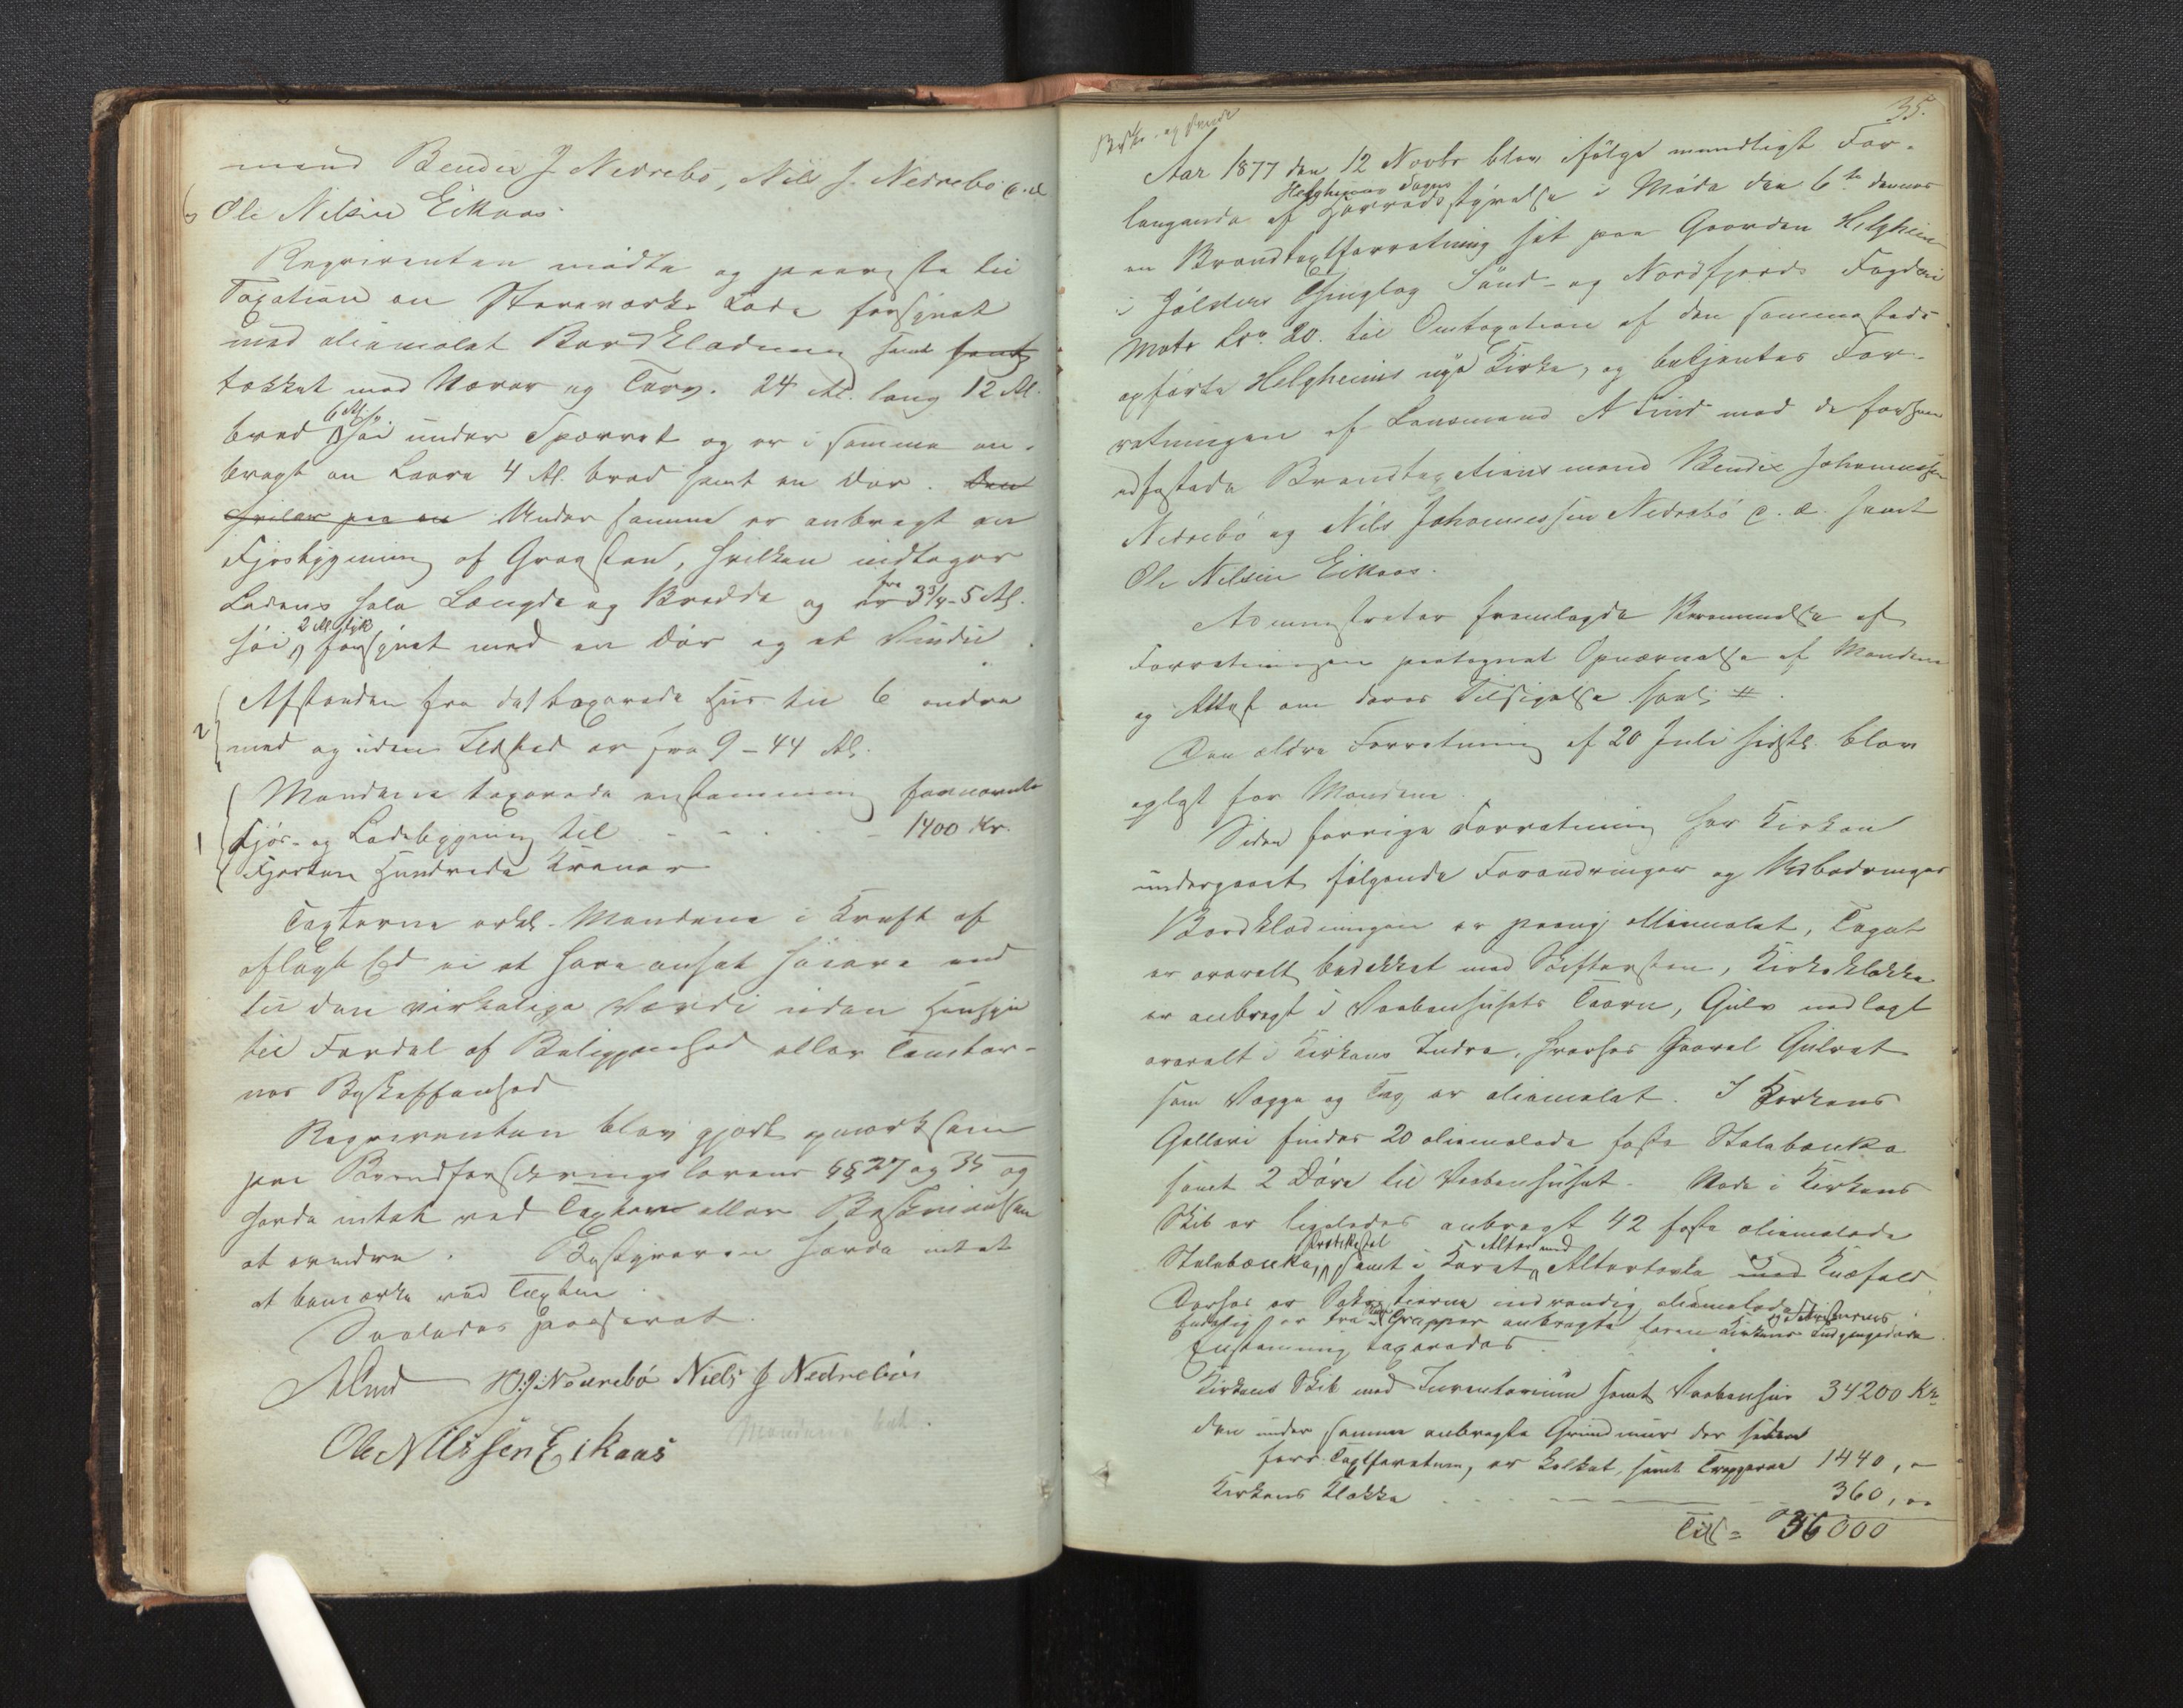 mænd Bendix J Nedrebø, Nils J. Nedrebø C. d
Ole Nilsen Eikaas.
Reqvirenten mødte og paaviste til
Taxation en Staveværks Lade forsynet
med oliemalet Bordklædning samt
tækket med Næver og Tørv. 24 Al. lang 12 Al.
bred 6 Al. høi under Spærret og er i samme an-
bragt en Laave 4 Al. bred samt en Dør. Den
hviler paa en Under samme er anbragt en
Fjøsbygning af Graasten, hvilken indtager
Ladens hele Længde og Bredde og er fra 3¾-5 Al.
høi, 2 Al. tyk forsynet med en Dør og et Vindu
2 Afstanden fra det taxerede Hus til 6 andre
med og uden Ildsted er fra 9-44 Al.
1 Mændene taxerede enstemmig fornævnte
Fjøs- og Ladebygning til - - - 1400 Kr.
Fjorten Hundrede Kroner
Taxterne erkl. Mændene i Kraft af
aflagt Ed ei at have ansat høiere end
til den virkelige Værdi uden Hensyn
til Fordel af Beliggenhed eller Tomter-
nes Beskaffenhed
Reqvirenten blev gjort opmærksom
paa Brandforsikringslovens §§ 27 og 35 og
havde intet ved Taxten eller Beskrivelsen
at erindre. Bestyreren havde intet
at bemærke ved Taxten.
Saaledes passeret.
ALind B.J. Nedrebø Niels J Nedrebø
Ole Nilssen Eikaas
Mændene bet.
35.
Beskr. og sendt
Aar 1877 den 12 Novbr blev ifølge mundligt For-
langende af Helgheims Sogns Herredsstyrelse i Møde den 6te dennes
en Brandtaxtforretning sat paa Gaarden Helgheim
i Jølsters Thinglag Sønd- og Nordfjords Fogderi
Matr Lno 20. til Omtaxation af den sammesteds
opførte Helgheims nye Kirke, og betjentes For-
retningen af Lensmand A Lind med de forhen
edfæstede Brandtaxationsmænd Bendix Johannessen
Nedrebø og Nils Johannessen Nedrebø C. d. samt
Ole Nilsen Eikaas.
Administrator fremlagde Berammelse af
Forretningen paategnet Opnævnelse af Mændene
og Attest om deres Tilsigelse saal: #.
Den ældre Forretning af 20 Juli sidstl. blev
oplæst for Mændene.
Siden forrige Forretning har Kirken
undergaaet følgende Forandringer og Udbedringer
Bordklædningen er paany oliemalet, Taget
er overalt bedækket med Skifersten, Kirkeklokke
er anbragt i Vaabenhusets Taarn, Gulv nedlagt
overalt i Kirkens Indre, hvorhos saavel Gulvet
som Vægge og Tag er oliemalet. I Kirkens
Galleri findes 20 oliemalede faste Stolebænke
samt 2 Døre til Vaabenhuset. Nede i Kirkens
Skib er ligeledes anbragt 42 faste oliemalede
Stolebænke, Prækestol samt i Koret, Alter med Altertavle med og Knæfald
Derhos er Sakristierne indvendig oliemalede
Endelig er tre Trapper anbragte foran Kirkens og Sakristiernes Indgangsdøre.
Enstemmig taxeredes
Kirkens Skib med Inventarium samt Vaabenhus 34200 Kr
den under samme anbragte Grundmur der siden
forr. Taxtforretn, er kalket, samt Trapperne 1440, -
Kirkens Klokke - - - 360, -
Tils = 36000